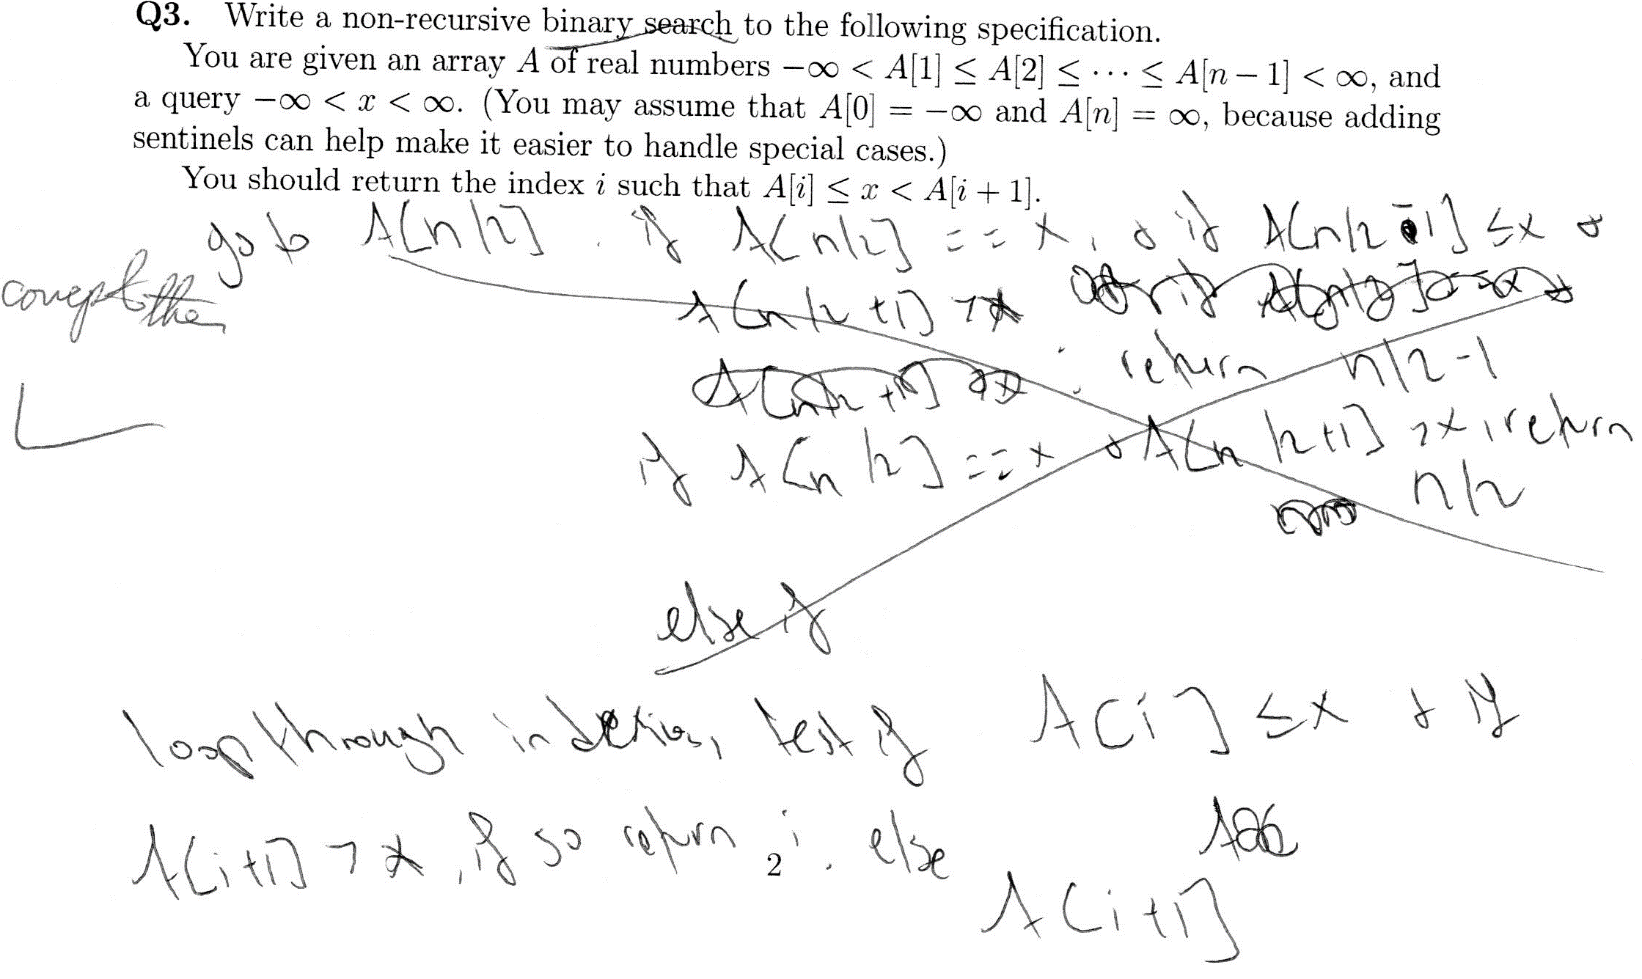 Q3. Write a non-recursive binary search to the following specification.
You are given an array A of real numbers −∞ < A[1] ≤ A[2] ≤ ⋯ ≤ A[n − 1] < ∞, and
a query −∞ < x < ∞. (You may assume that A[0] = −∞ and A[n] = ∞, because adding
sentinels can help make it easier to handle special cases.)
You should return the index i such that A[i] ≤ x < A[i + 1].
go to A[n/2]. if A[n/2] == x, & if A[n/2 -1] ≤x &
A[n/2 +1] >x
: return n/2-1
if A[n/2] == x & A[n/2+1] >x, return
n/2
else if
loop through indices, test if A[i] ≤x & if
A[i+1] >x, if so return i. else
A[i+1]
2